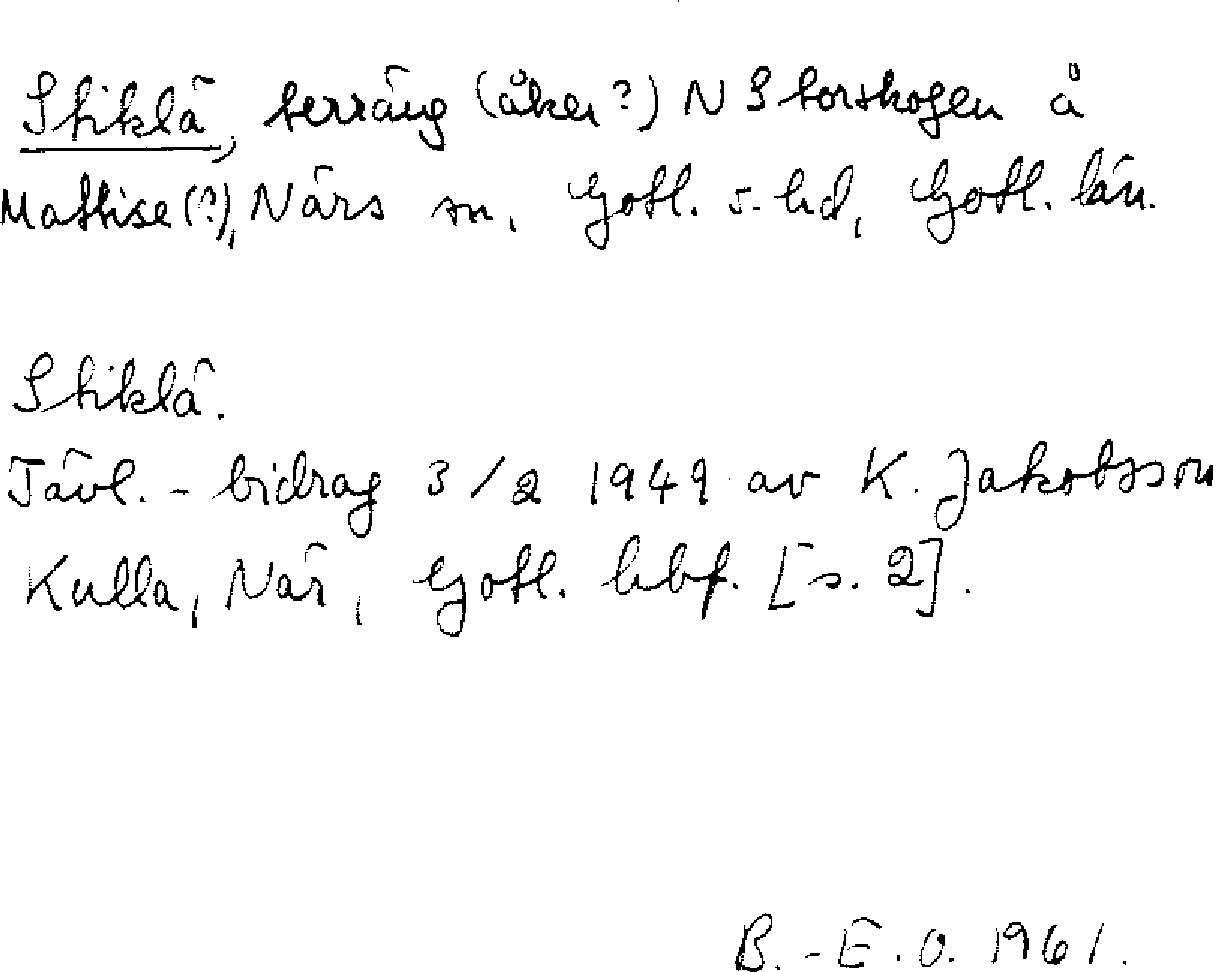 Stiklä, terräng (åker?) N Storskogen å
Mattise(?), Närs sn, Gotl. s. hd, Gotl. län.
Stiklä.
Tävl.-bidrag 3/2 1949 av K. Jakobsson
Kulla, När, Gotl. hbf. [s. 2].
B.-E.O. 1961.